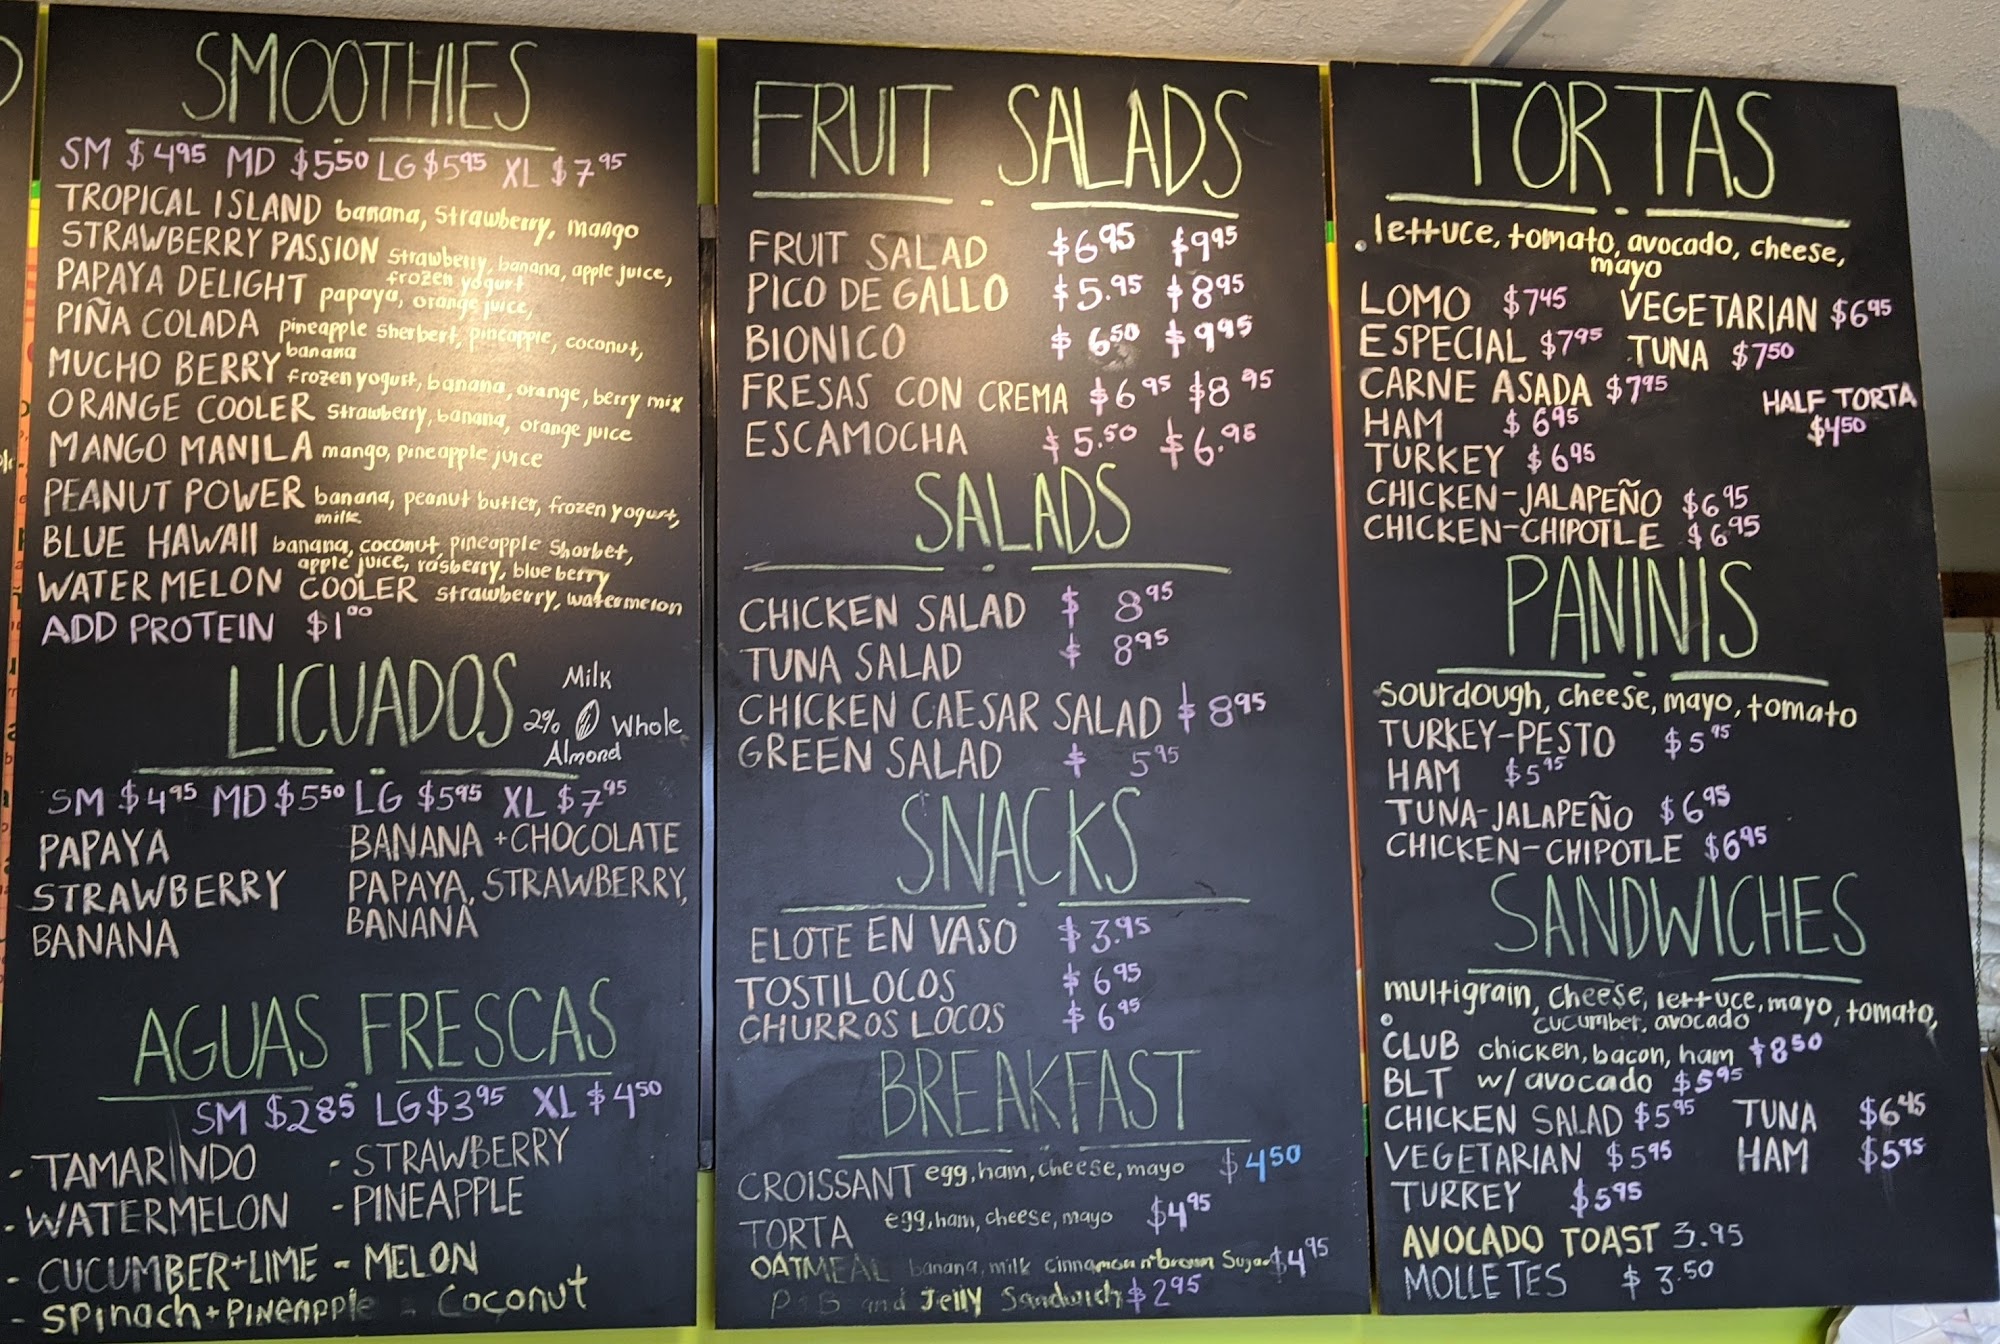 SMOOTHIES
SM $4.95 MD $5.50 LG $5.95 XL $7.95
TROPICAL ISLAND banana, strawberry, mango
STRAWBERRY PASSION strawberry, banana, apple juice,
frozen yogurt
PAPAYA DELIGHT papaya, orange juice,
PIÑA COLADA pineapple sherbert, pineapple, coconut,
banana
MUCHO BERRY frozen yogurt, banana, orange, berry mix
ORANGE COOLER strawberry, banana, orange juice
MANGO MANILA mango, pineapple juice
PEANUT POWER banana, peanut butter, frozen yogurt,
milk
BLUE HAWAII banana, coconut, pineapple shorbet,
apple juice, rasberry, blueberry
WATERMELON COOLER strawberry, watermelon
ADD PROTEIN $1.00
LICUADOS
Milk
2% Whole
Almond
SM $4.95 MD $5.50 LG $5.95 XL $7.95
PAPAYA BANANA + CHOCOLATE
STRAWBERRY PAPAYA, STRAWBERRY,
BANANA BANANA
AGUAS FRESCAS
SM $2.85 LG $3.95 XL $4.50
- TAMARINDO - STRAWBERRY
- WATERMELON - PINEAPPLE
- CUCUMBER+LIME - MELON
- Spinach + Pineapple - Coconut
FRUIT SALADS
FRUIT SALAD $6.95 $9.95
PICO DE GALLO $5.95 $8.95
BIONICO $6.50 $9.95
FRESAS CON CREMA $6.95 $8.95
ESCAMOCHA $5.50 $6.95
SALADS
CHICKEN SALAD $8.95
TUNA SALAD $8.95
CHICKEN CAESAR SALAD $8.95
GREEN SALAD $5.95
SNACKS
ELOTE EN VASO $3.95
TOSTILOCOS $6.95
CHURROS LOCOS $6.95
BREAKFAST
CROISSANT egg, ham, cheese, mayo $4.50
TORTA egg, ham, cheese, mayo $4.95
OATMEAL banana, milk cinnamon n brown Sugar $4.95
and Jelly Sandwich $2.95
TORTAS
lettuce, tomato, avocado, cheese,
mayo
LOMO $7.45 VEGETARIAN $6.95
ESPECIAL $7.95 TUNA $7.50
CARNE ASADA $7.95 HALF TORTA
HAM $6.95 $4.50
TURKEY $6.95
CHICKEN-JALAPEÑO $6.95
CHICKEN-CHIPOTLE $6.95
PANINIS
sourdough, cheese, mayo, tomato
TURKEY-PESTO $5.95
HAM $5.95
TUNA-JALAPEÑO $6.95
CHICKEN-CHIPOTLE $6.95
SANDWICHES
multigrain, cheese, lettuce, mayo, tomato,
cucumber, avocado
CLUB chicken, bacon, ham $8.50
BLT w/ avocado $5.95
CHICKEN SALAD $5.95 TUNA $6.45
VEGETARIAN $5.95 HAM $5.95
TURKEY $5.95
AVOCADO TOAST 3.95
MOLLETES $3.50